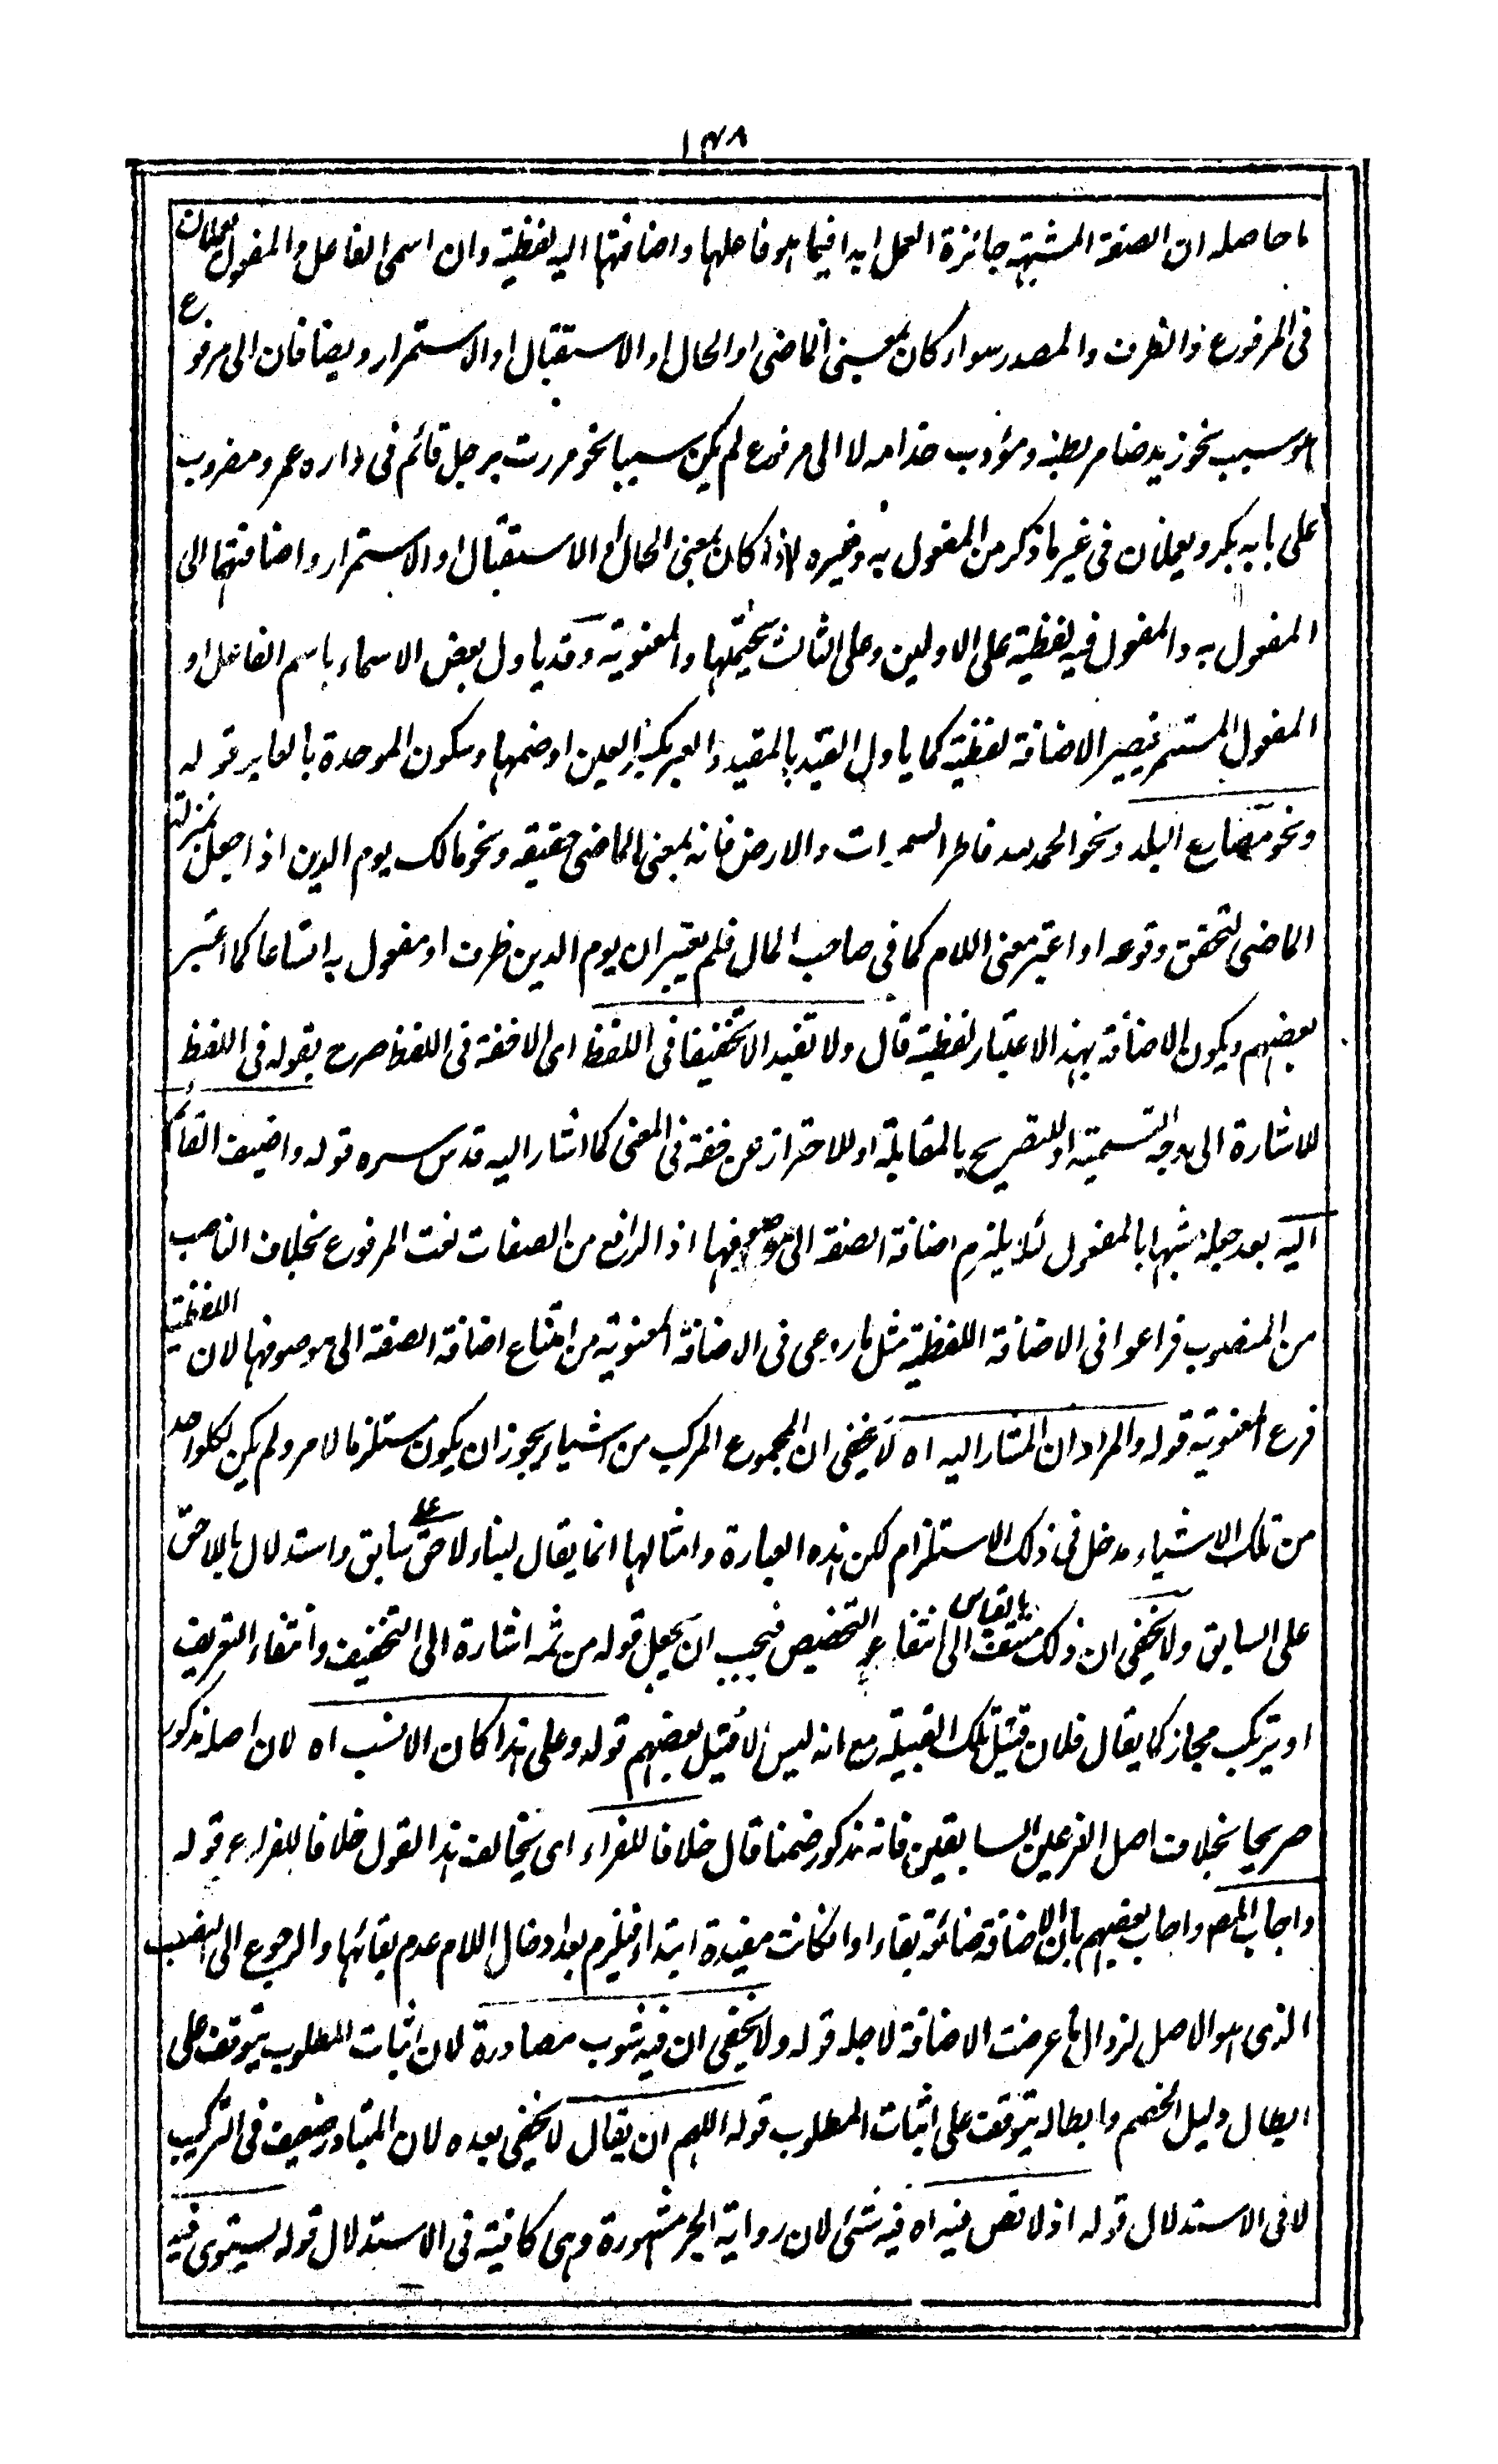 ١٣٨
ما حاصله ان الصفة المشبهة جائزة العمل ابدا فيما هو فاعلها واضافتها اليه لفظية وان اسمى الفاعل والمفعول يعملان
فى المرفوع والظرف والمصدر سواء كان بمعنى الماضى او الحال او الاستقبال او الاستمرار ويضافان الى مرفوع
هو سبب نحو زيد ضامر بطنه ومؤدب خدامه لا الى مرفوع لم يكن سببا نحو مررت برجل قائم فى داره عمرو مضروب
على بابه بكر ويعملان فى غير ما ذكر من المفعول به وغيره اذا كان بمعنى الحال او الاستقبال او الاستمرار واضافتهما الى
المفعول به والمفعول فيه لفظية على الاولين وعلى الثالث يحتملها والمعنوية وقد ياول بعض الاسماء باسم الفاعل او
المفعول المستمر فيصير الاضافة لفظية كما ياول القيد بالمقيد والعبر بكسر العين او ضمها وسكون الموحدة بالعابر قوله
ونحو مصارع البلد ونحو الحمد لله فاطر السموات والارض فانه بمعنى الماضى حقيقة ونحو مالك يوم الدين اذا جعل بمنزلة
الماضى لتحقق وقوعه او اعتبر معنى اللام كما فى صاحب المال فلم يعتبر ان يوم الدين ظرف او مفعول به اتساعا كما اعتبر
بعضهم ويكون الاضافة بهذا الاعتبار لفظية قال ولا تفيد الا تخفيفا فى اللفظ اى الا خفة فى اللفظ صرح بقوله فى اللفظ
للاشارة الى وجه التسمية او للتصريح بالمقابلة او للاحتراز عن خفة فى المعنى كما اشار اليه قدس سره قوله واضيف القائم
اليه بعد جعله شبها بالمفعول لئلا يلزم اضافة الصفة الى موصوفها اذ الرافع من الصفات نعت المرفوع بخلاف الناصب
من المنصوب فراعوا فى الاضافة اللفظية مثل ما روعى فى الاضافة المعنوية من امتناع اضافة الصفة الى موصوفها لان اللفظية
فرع المعنوية قوله والمراد ان المشار اليه اه لا يخفى ان المجموع المركب من اشياء يجوز ان يكون مستلزما لامر ولم يكن لكل واحد
من تلك الاشياء مدخل فى ذلك الاستلزام لكن هذه العبارة وامثالها انما يقال لبناء لاحق على سابق واستدلال باللاحق
على السابق ولا يخفى ان ذلك منتف بالقياس الى انتفاء التخصيص فيجب ان يجعل قوله من ثمه اشارة الى التخفيف وانتفاء التعريف
او يرتكب مجاز كما يقال فلان قتيل تلك القبيلة مع انه ليس الا قتيل بعضهم قوله وعلى هذا كان الانسب اه لان اصله مذكور
صريحا بخلاف اصل الفرعين السابقين فانه مذكور ضمنا قال خلافا للفراء اى يخالف هذا القول خلافا للفراء قوله
واجاب المصـ واجاب بعضهم بان الاضافة ضائعة بقاء وان كانت مفيدة ابتداء فيلزم بعد ادخال اللام عدم بقائها والرجوع الى النصب
الذى هو الاصل لزوال ما عرضت الاضافة لاجله قوله ولا يخفى ان فيه شوب مصادرة لان اثبات المطلوب يتوقف على
ابطال دليل الخصم وابطاله يتوقف على اثبات المطلوب قوله اللهم ان يقال لا يخفى بعده لان المتبادر ضعيف فى التركيب
لا فى الاستدلال قوله اذ لا نص فيه اه فيه شئ لان رواية الجر مشهورة وهى كافية فى الاستدلال قوله يستوى فيه